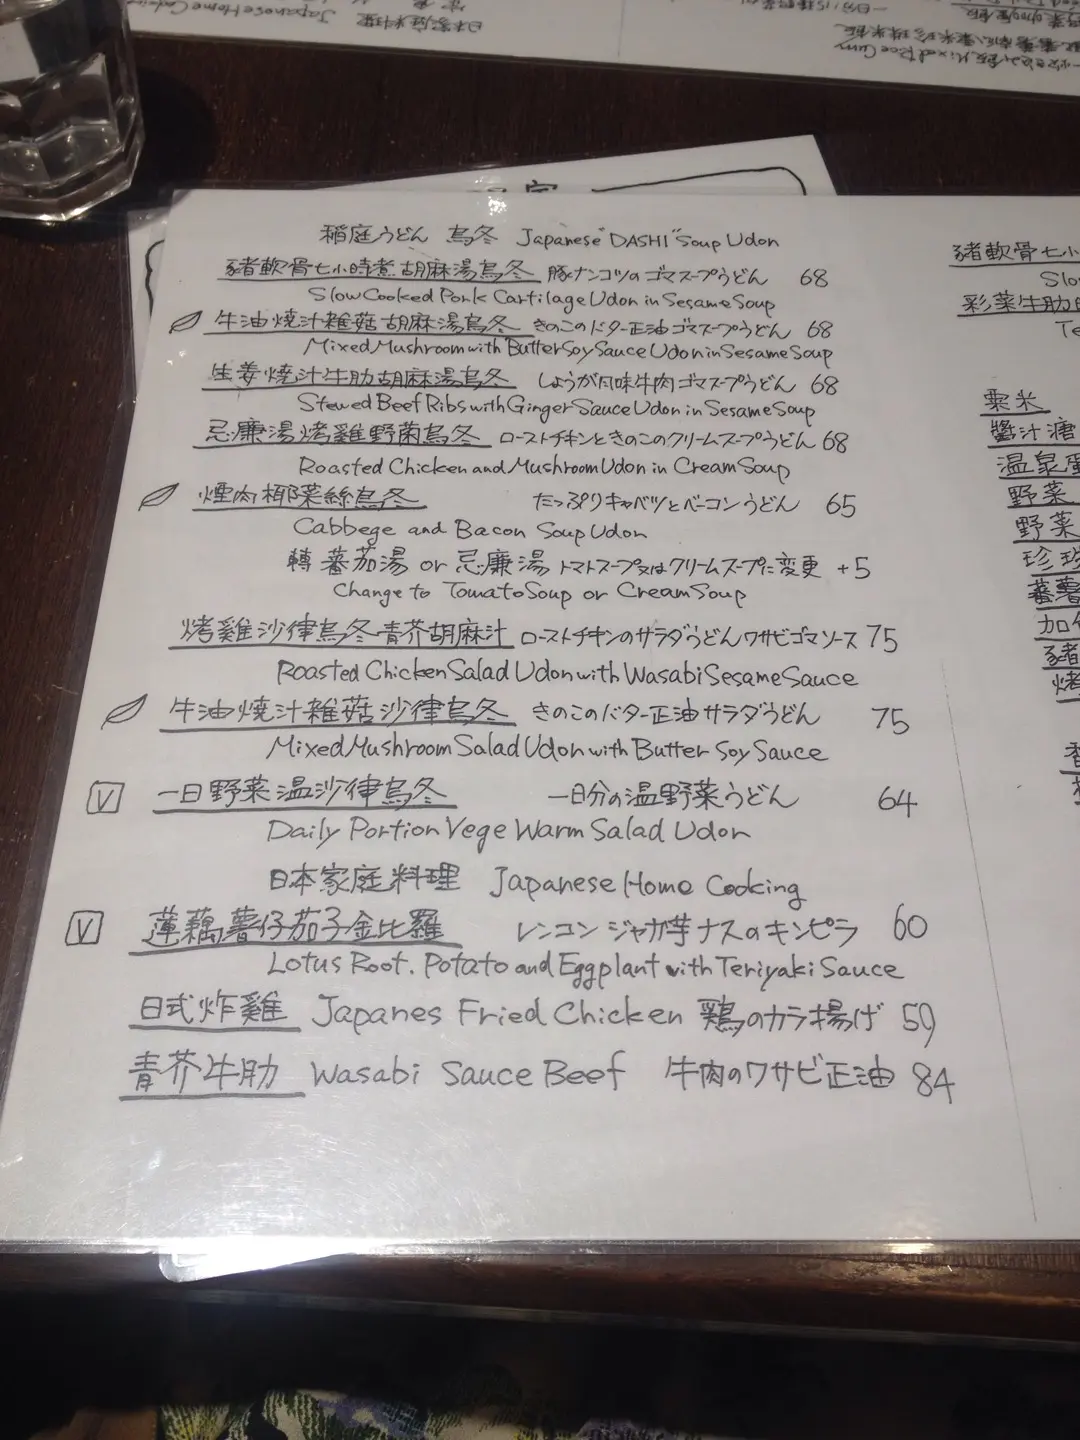 日本家庭料理
Japanese Home Cooking
Mixed Rice Curry
稲庭うどん 烏冬 Japanese "DASHI" Soup Udon
豬軟骨七小時煮胡麻湯烏冬 豚ナンコツのゴマスープうどん 68
Slow Cooked Pork Cartilage Udon in Sesame Soup
牛油燒汁雜菇胡麻湯烏冬 きのこのバター正油ゴマスープうどん 68
Mixed Mushroom with Butter Soy Sauce Udon in Sesame Soup
生姜燒汁牛肋胡麻湯烏冬 しょうが風味牛肉ゴマスープうどん 68
Stewed Beef Ribs with Ginger Sauce Udon in Sesame Soup
忌廉湯烤雞野菌烏冬 ローストチキンときのこのクリームスープうどん 68
Roasted Chicken and Mushroom Udon in Cream Soup
煙肉椰菜絲烏冬 たっぷりキャベツとベーコンうどん 65
Cabbege and Bacon Soup Udon
轉蕃茄湯 or 忌廉湯 トマトスープ又はクリームスープに変更 +5
Change to Tomato Soup or Cream Soup
烤雞沙律烏冬青芥胡麻汁 ローストチキンのサラダうどんワサビゴマソース 75
Roasted Chicken Salad Udon with Wasabi Sesame Sauce
牛油燒汁雜菇沙律烏冬 きのこのバター正油サラダうどん 75
Mixed Mushroom Salad Udon with Butter Soy Sauce
V 一日野菜温沙律烏冬 一日分の温野菜うどん 64
Daily Portion Vege Warm Salad Udon
日本家庭料理 Japanese Home Cooking
V 蓮藕薯仔茄子金比羅 レンコン ジャガ芋 ナスのキンピラ 60
Lotus Root. Potato and Eggplant with Teriyaki Sauce
日式炸雞 Japanes Fried Chicken 鶏のカラ揚げ 59
青芥牛肋 Wasabi Sauce Beef 牛肉のワサビ正油 84
豬軟骨七小
Slo
彩菜牛肋
Te
粟米
醬汁溏
温泉蛋
野菜
野菜
珍珍
蕃薯
加
豬
烤